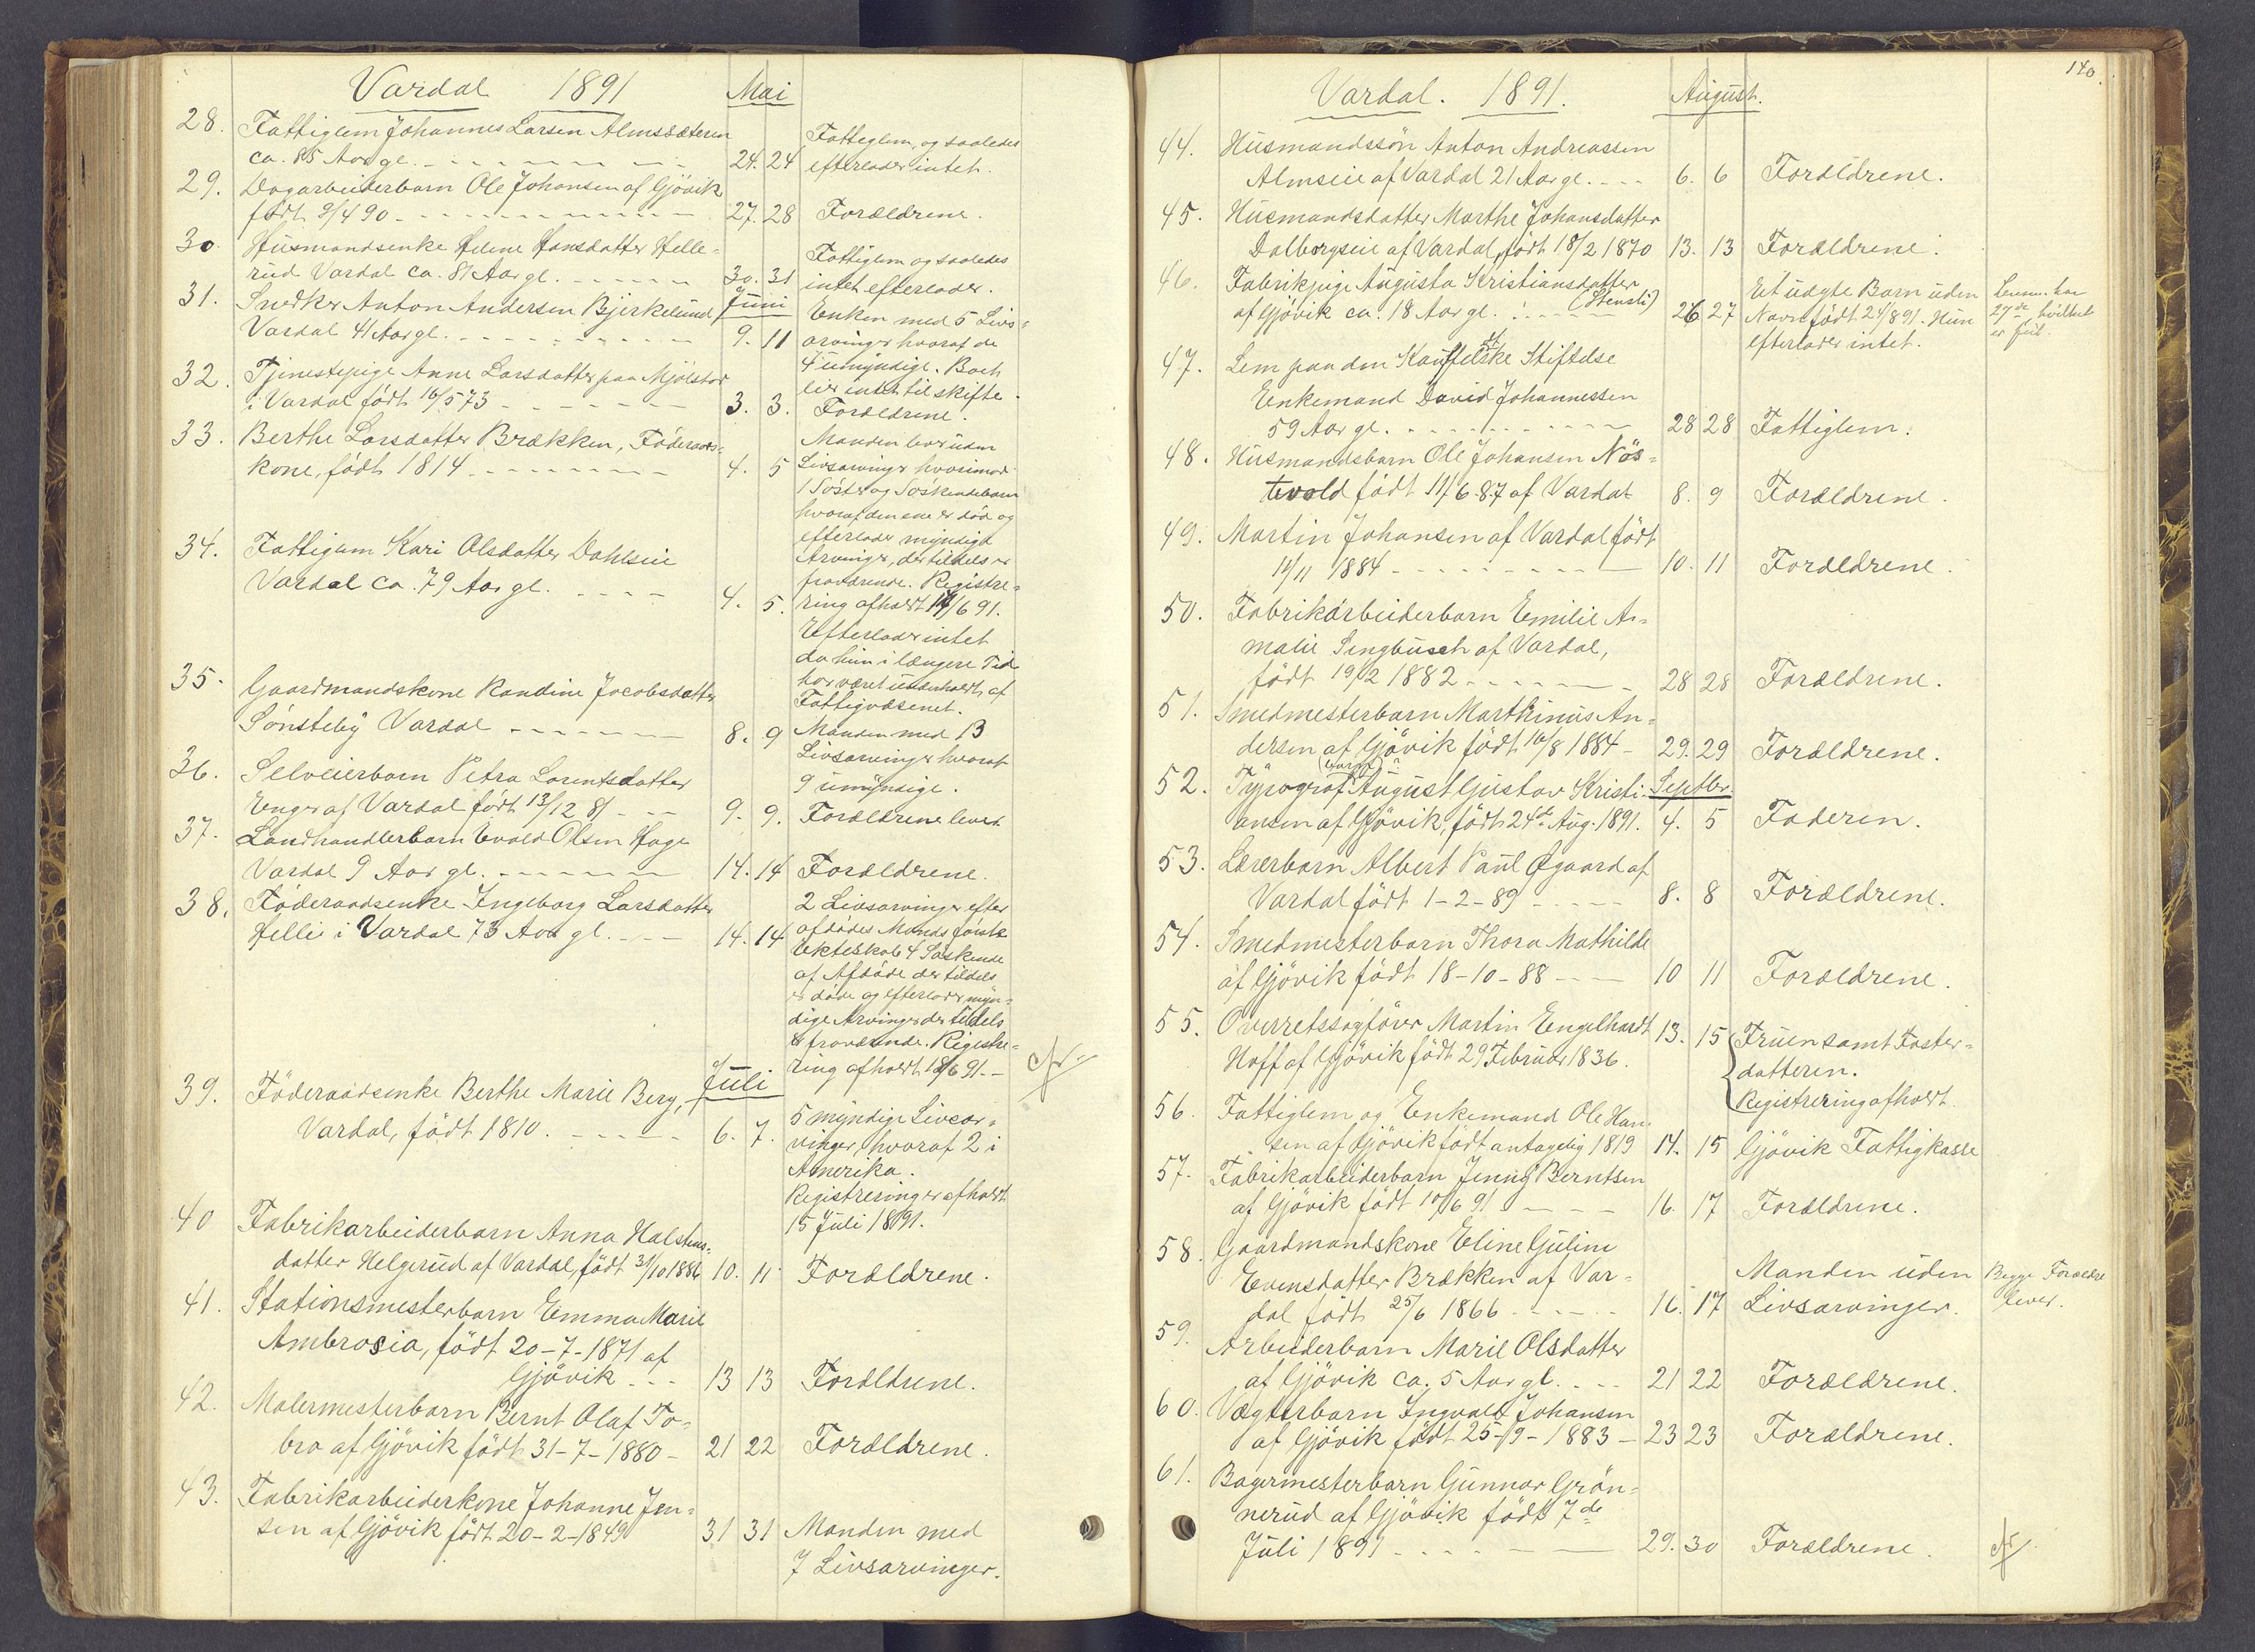 Vardal 1891 Mai
28. Fattiglem Johannes Larsen Almsæteren
ca. 85 Aar gl. 24. 24
Fattiglem, og saaledes
efterlader intet.
29. Dagarbeiderbarn Ole Johansen af Gjövik
født 9/4 90 27. 28 Forældrene.
30. Husmandsenke Helene Hansdatter Helle-
rud Vardal ca. 81 Aar gl. 30. 31
Fattiglem og saaledes
intet efterlader.
Juni
31. Snedker Anton Andersen Bjerkelund
Vardal 41 Aar gl. 9. 11
Enken med 5 Livs-
arvinger hvoraf de
4 umyndige. Boet
lir intet til skifte.
32. Tjenestepige Anne Larsdatter paa Mjölstad
i Vardal født 16/5 73 3. 3. Forældrene.
33. Berthe Larsdatter Brækken, Föderaads-
kone, født 1814 4. 5
Manden lever uden
Livsarvinger hvorimod
1 Söster og Söskendebarn
hvoraf den ene er död og
efterlader myndige
Arvinger, der tildels er
fraværende. Registre-
ring afholdt 14/6 91.
34. Fattiglem Kari Olsdatter Dahlseie
Vardal ca. 79 Aar gl. 4. 5.
Efterlader intet
da hun i længere Tid
har været underholdt af
Fattigvæsenet.
35. Gaardmandskone Randine Jacobsdatter
Sönsteby Vardal 8. 9
Manden med 13
Livsarvinger hvoraf
9 umyndige.
36. Selveierbarn Petra Lorentsdatter
Enger af Vardal født 13/12 81 9. 9. Forældrene lever
37. Landhandlerbarn Evald Olsen Hage
Vardal 9 Aar gl. 14. 14 Forældrene.
38. Föderaadsenke Ingeborg Larsdatter
Hellie i Vardal 73 Aar gl. 14. 14
2 Livsarvinger efter
afdödes Mands første
Ekteskab 4 Søskende
af Afdöde der tildels
er döde og efterlader myn-
dige Arvinger der tildels
er fraværende. Registre-
ring afholdt 18/6 91.
Juli
39. Föderaadsenke Berthe Marie Berg,
Vardal, født 1810. 6. 7.
5 myndige Livsar-
vinger, hvoraf 2 i
Amerika.
Registrering er afholdt
15 Juli 1891.
40 Fabrikarbeiderbarn Anna Halstens-
datter Helgerud af Vardal, født 31/10 1886 10. 11 Forældrene.
41. Stationsmesterbarn Emma Marie
Ambrosia, født 20-7-1871 af
Gjövik 13 13 Forældrene.
42. Malermesterbarn Bernt Olaf To-
bro af Gjövik født 31-7-1880 21 22 Forældrene.
43. Fabrikarbeiderkone Johanne Jen-
sen af Gjövik født 20-2-1849 31 31 Manden med
7 Livsarvinger.
140.
Vardal. 1891. August.
44. Husmandssön Anton Andreassen
Almseie af Vardal 21 Aar gl. 6. 6 Forældrene.
45. Husmandsdatter Marthe Johansdatter
Dalborgseie af Vardal, født 18/2 1870 13. 13 Forældrene.
46. Fabrikpige Augusta Kristiansdatter
(Stensli)
af Gjövik ca. 18 Aar gl. 26 27
Et uægte Barn uden
Navn født 24/8 91. Hun
efterlader intet.
47. Lem paa den Kauffeldtske Stiftelse
Enkemand David Johannessen
59 Aar gl. 28 28 Fattiglem.
48. Husmandsbarn Ole Johansen Nös-
tvold født 11/6-87 af Vardal 8. 9 Forældrene.
49. Martin Johansen af Vardal født
11/11 1884 10. 11 Forældrene.
50. Fabrikarbeiderbarn Emilie A-
malie Lengbusch af Vardal,
født 19/2 1882 28 28 Forældrene.
51. Smedmesterbarn Marthinus An-
dersen af Gjövik født 16/8 1884 29. 29 Forældrene.
52. Typograf August Gustav Kristi- Septbr.
ansen af Gjövik, født 24de Aug. 1891. 4. 5 Faderen.
53. Lærerbarn Albert Paul Øgaard af
Vardal født 1-2-89 8. 8 Forældrene.
54. Smedmesterbarn Thora Mathilde
af Gjövik født 18-10-88 10 11 Forældrene.
55. Overretssagfører Martin Engelhardt 13. 15 Fruen samt Foster-
Hoff af Gjövik født 29 Februar 1836. datteren.
Registrering afholdt.
56. Fattiglem og Enkemand Ole Han-
sen af Gjövik født antagelig 1819 14. 15 Gjövik Fattigkasse
57. Fabrikarbeiderbarn Jenny Berntsen
af Gjövik født 10/6 91 16. 17 Forældrene.
58. Gaardmandskone Eline Guline
Evensdatter Brækken af Var-
dal født 25/6 1866 16. 17
Manden uden
Livsarvinger.
Begge Forældre
lever.
59. Arbeiderbarn Marie Olsdatter
af Gjövik ca. 5 Aar gl. 21 22 Forældrene.
60. Vægterbarn Ingvald Johansen
af Gjövik født 25-9-1883 23 23 Forældrene.
61. Bagermesterbarn Gunnar Grön-
nerud af Gjövik født 7de
Juli 1891 29. 30 Forældrene.